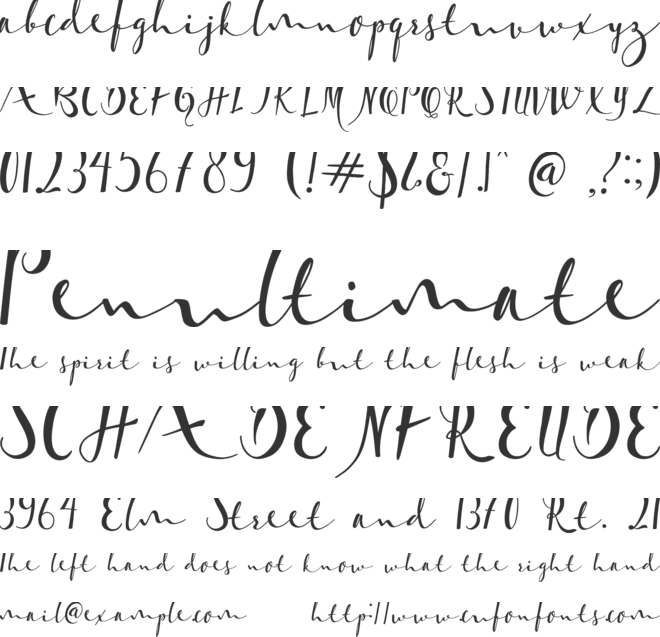 abcdefghijklmnopqrstuvwxyz
ABCDEFGHIJKLMNOPQRSTUVWXYZ
0123456789 (!#$%&/.|^ @ ,?:;)
Penultimate
The spirit is willing but the flesh is weak
SCHADENFREUDE
3964 Elm Street and 1370 Rt. 21
The left hand does not know what the right hand
mail@example.com http://www.cufonfonts.com